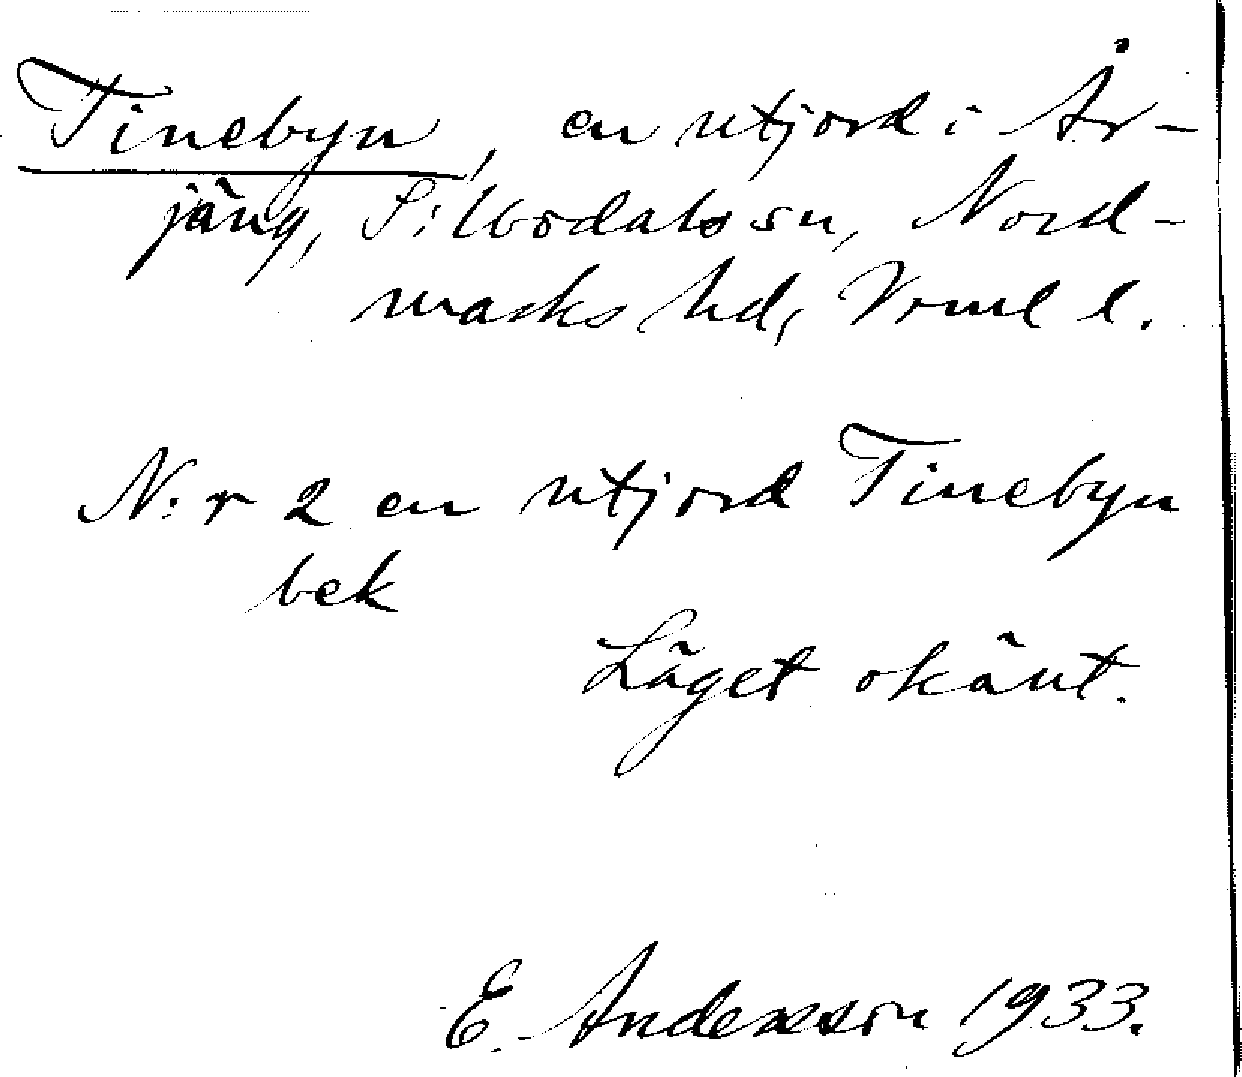 Tinebyn, en utjord i År-
jäng, Silbodals sn, Nord-
marks hd, Vrml l.
N:r 2 en utjord Tinebyn
bek
Läget okänt.
E. Andersson 1933.